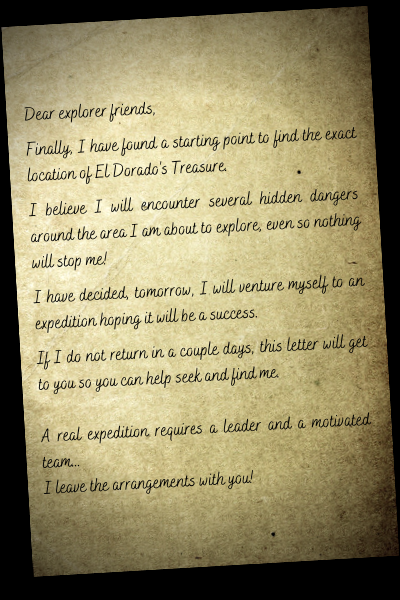 Dear explorer friends,
Finally, I have found a starting point to find the exact
location of El Dorado's Treasure.
I believe I will encounter several hidden dangers
around the area I am about to explore, even so nothing
will stop me!
I have decided, tomorrow, I will venture myself to an
expedition hoping it will be a success.
If I do not return in a couple days, this letter will get
to you so you can help seek and find me.
A real expedition requires a leader and a motivated
team...
I leave the arrangements with you!